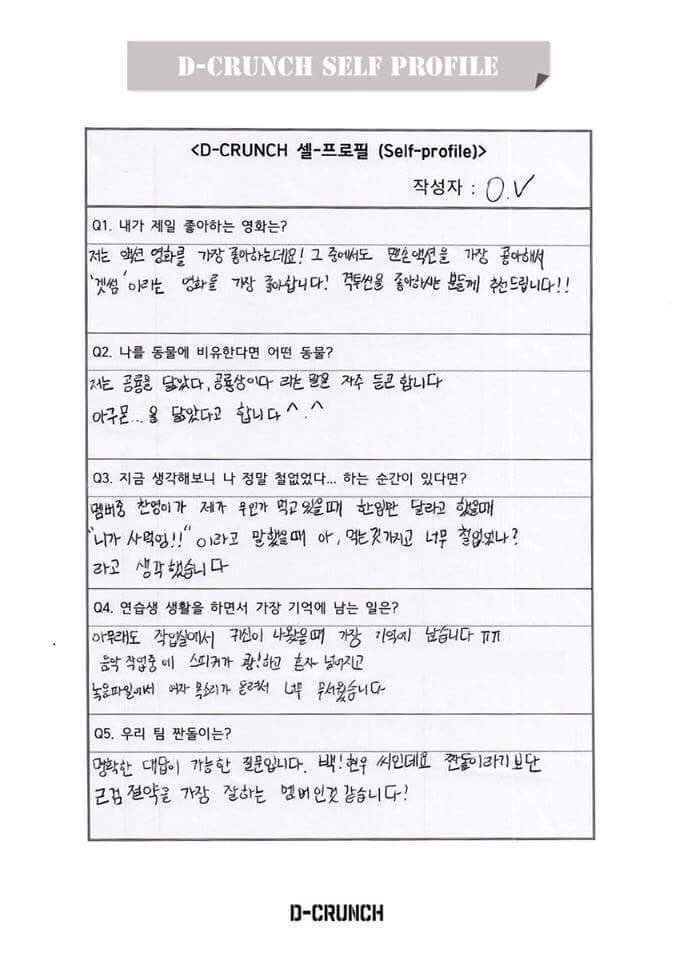 D-CRUNCH SELF PROFILE
<D-CRUNCH 셀-프로필 (Self-profile)>
작성자 : O.V
Q1. 내가 제일 좋아하는 영화는?
저는 액션 영화를 가장 좋아하는데요! 그 중에서도 맨손액션을 가장 좋아해서
'겟썸' 이라는 영화를 가장 좋아합니다! 격투씬을 좋아하시는 분들께 추천드립니다!!
Q2. 나를 동물에 비유한다면 어떤 동물?
저는 공룡을 닮았다, 공룡상이다 라는 말을 자주 듣곤 합니다
아구몬...을 닮았다고 합니다^.^
Q3. 지금 생각해보니 나 정말 철없었다... 하는 순간이 있다면?
멤버중 찬영이가 제가 무언가 먹고있을때 한입만 달라고 했을때
"니가 사먹임!!" 이라고 말했을때 아, 먹는것가지고 너무 철없었나?
라고 생각했습니다
Q4. 연습생 생활을 하면서 가장 기억에 남는 일은?
아무래도 작업실에서 귀신이 나왔을때 가장 기억에 남습니다 ㅠㅠ
음악 작업중에 스피커가 쾅!하고 혼자 넘어지고
녹음파일에서 여자 목소리가 들려서 너무 무서웠습니다
Q5. 우리 팀 짠돌이는?
명확한 대답이 가능한 질문입니다. 백!현우 씨인데요 짠돌이라기보단
근검절약을 가장 잘하는 멤버인것 같습니다!
D-CRUNCH